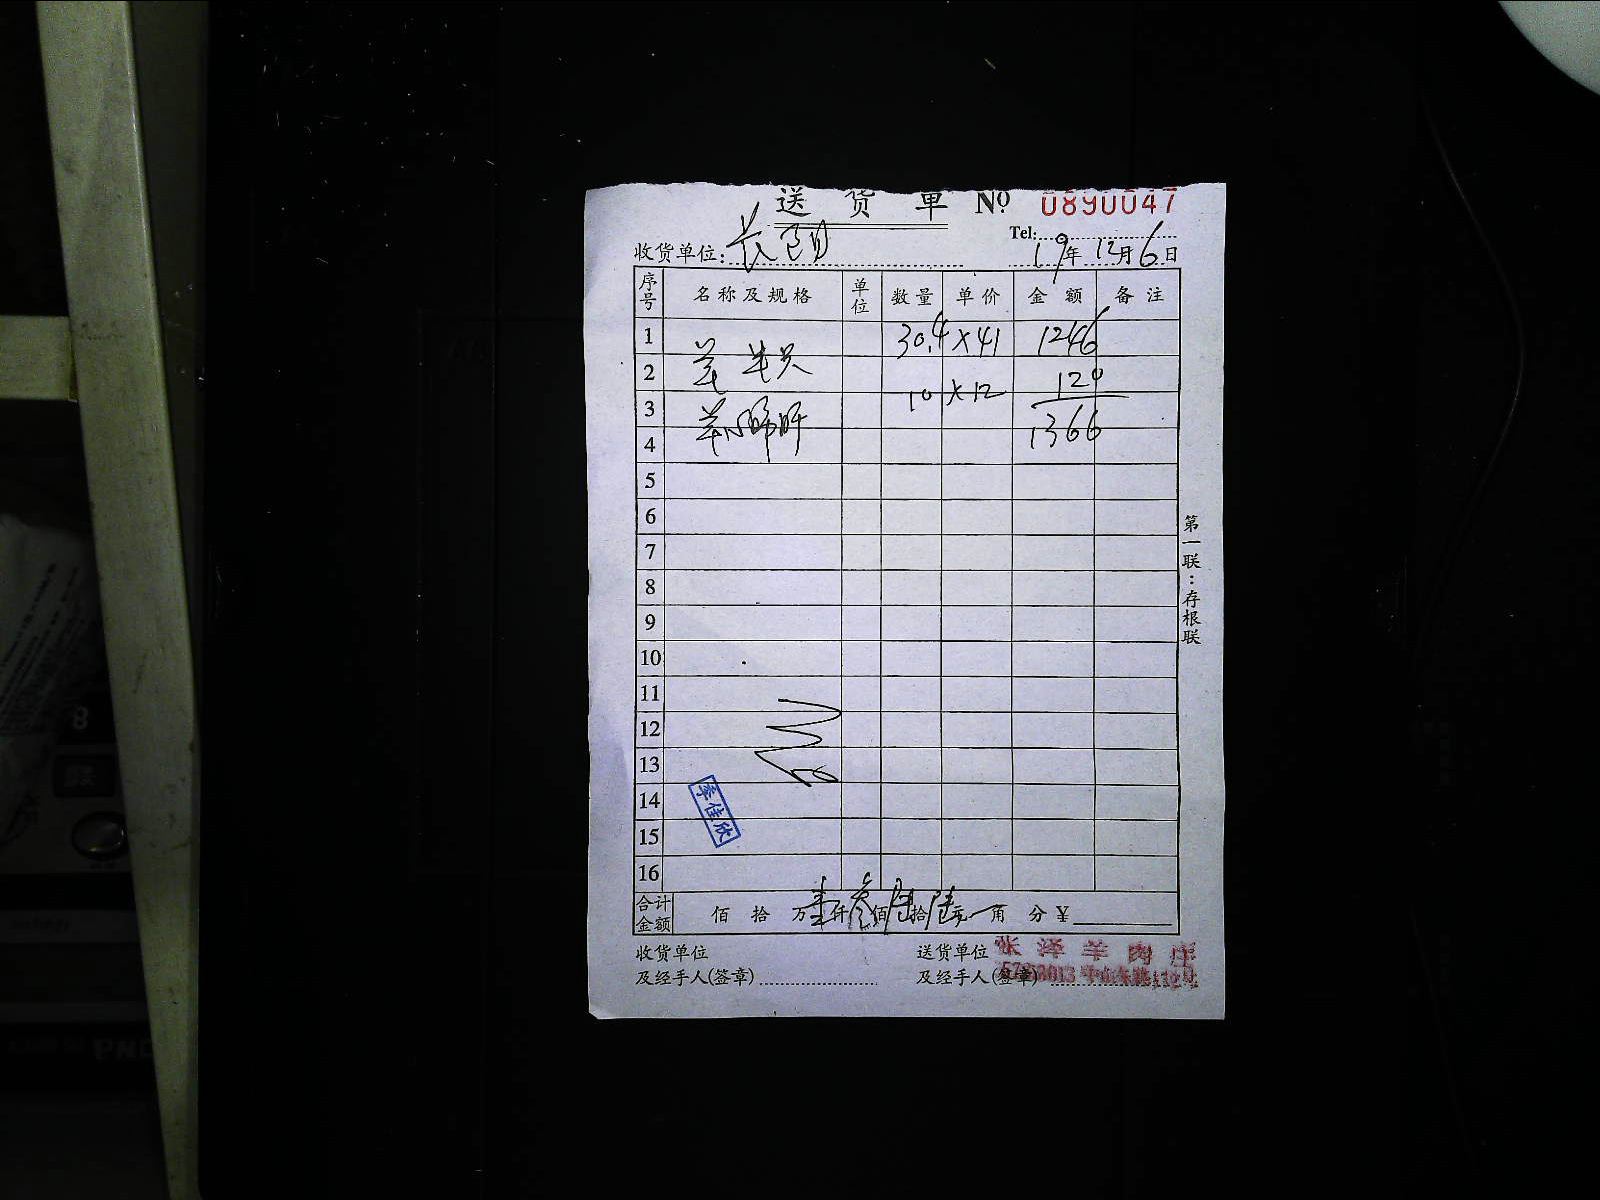 送货单 № 0890047
Tel:
收货单位: 19年 12月 6日
序号 名称及规格 单位 数量 单价 金额 备注
1 30.4 × 41 1246
2 羊 半只 10 × 12 120
3 羊心肺肝 1366
4
5
6
7
8
9
10
11
12
13
14
15
16
季佳欣
合计金额 佰 拾 万 壹 仟 叁 佰 陆 拾 陆 元 角 分 ¥
收货单位 送货单位 张泽羊肉庄
及经手人(签章) 及经手人(签章)
第一联:存根联